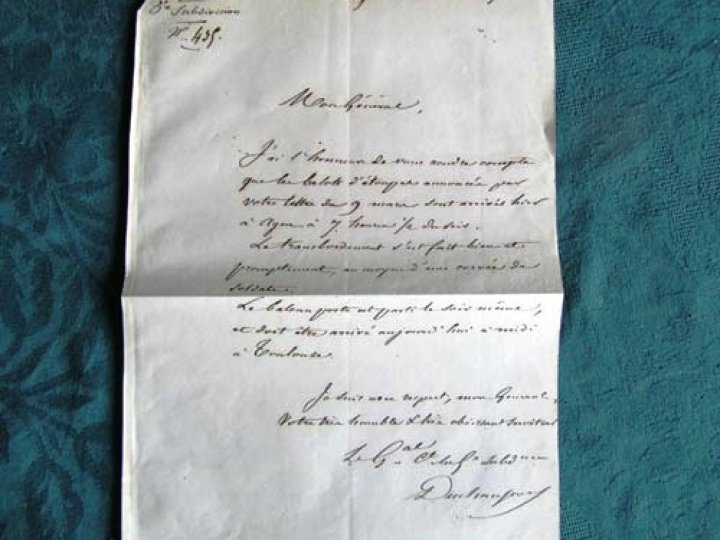 5e Subdivision
N° 435.
Mon Général,
J'ai l'honneur de vous rendre compte
que les ballots d'étoupes annoncés par
votre lettre du 9 mars sont arrivés hier
à Agen à 7 heures 1/2 du soir.
Le transbordement s'est fait bien et
promptement, au moyen d'une corvée de
soldats.
Le bateau poste est parti le soir même,
et doit être arrivé aujourd'hui à midi
à Toulouse
Je suis avec respect, mon Général,
Votre très humble & très obéissant Serviteur
Le Gal Ct la 5e Subdon